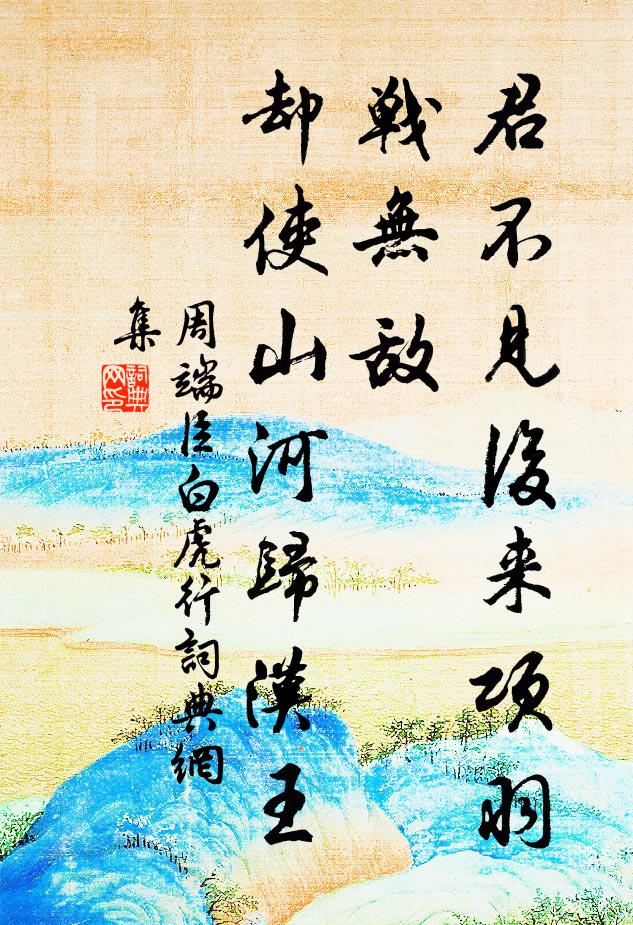 君不見後来項羽
戦無敵
却使山河歸漢王
周端臣白虎行詞典網
集
詞典
网印